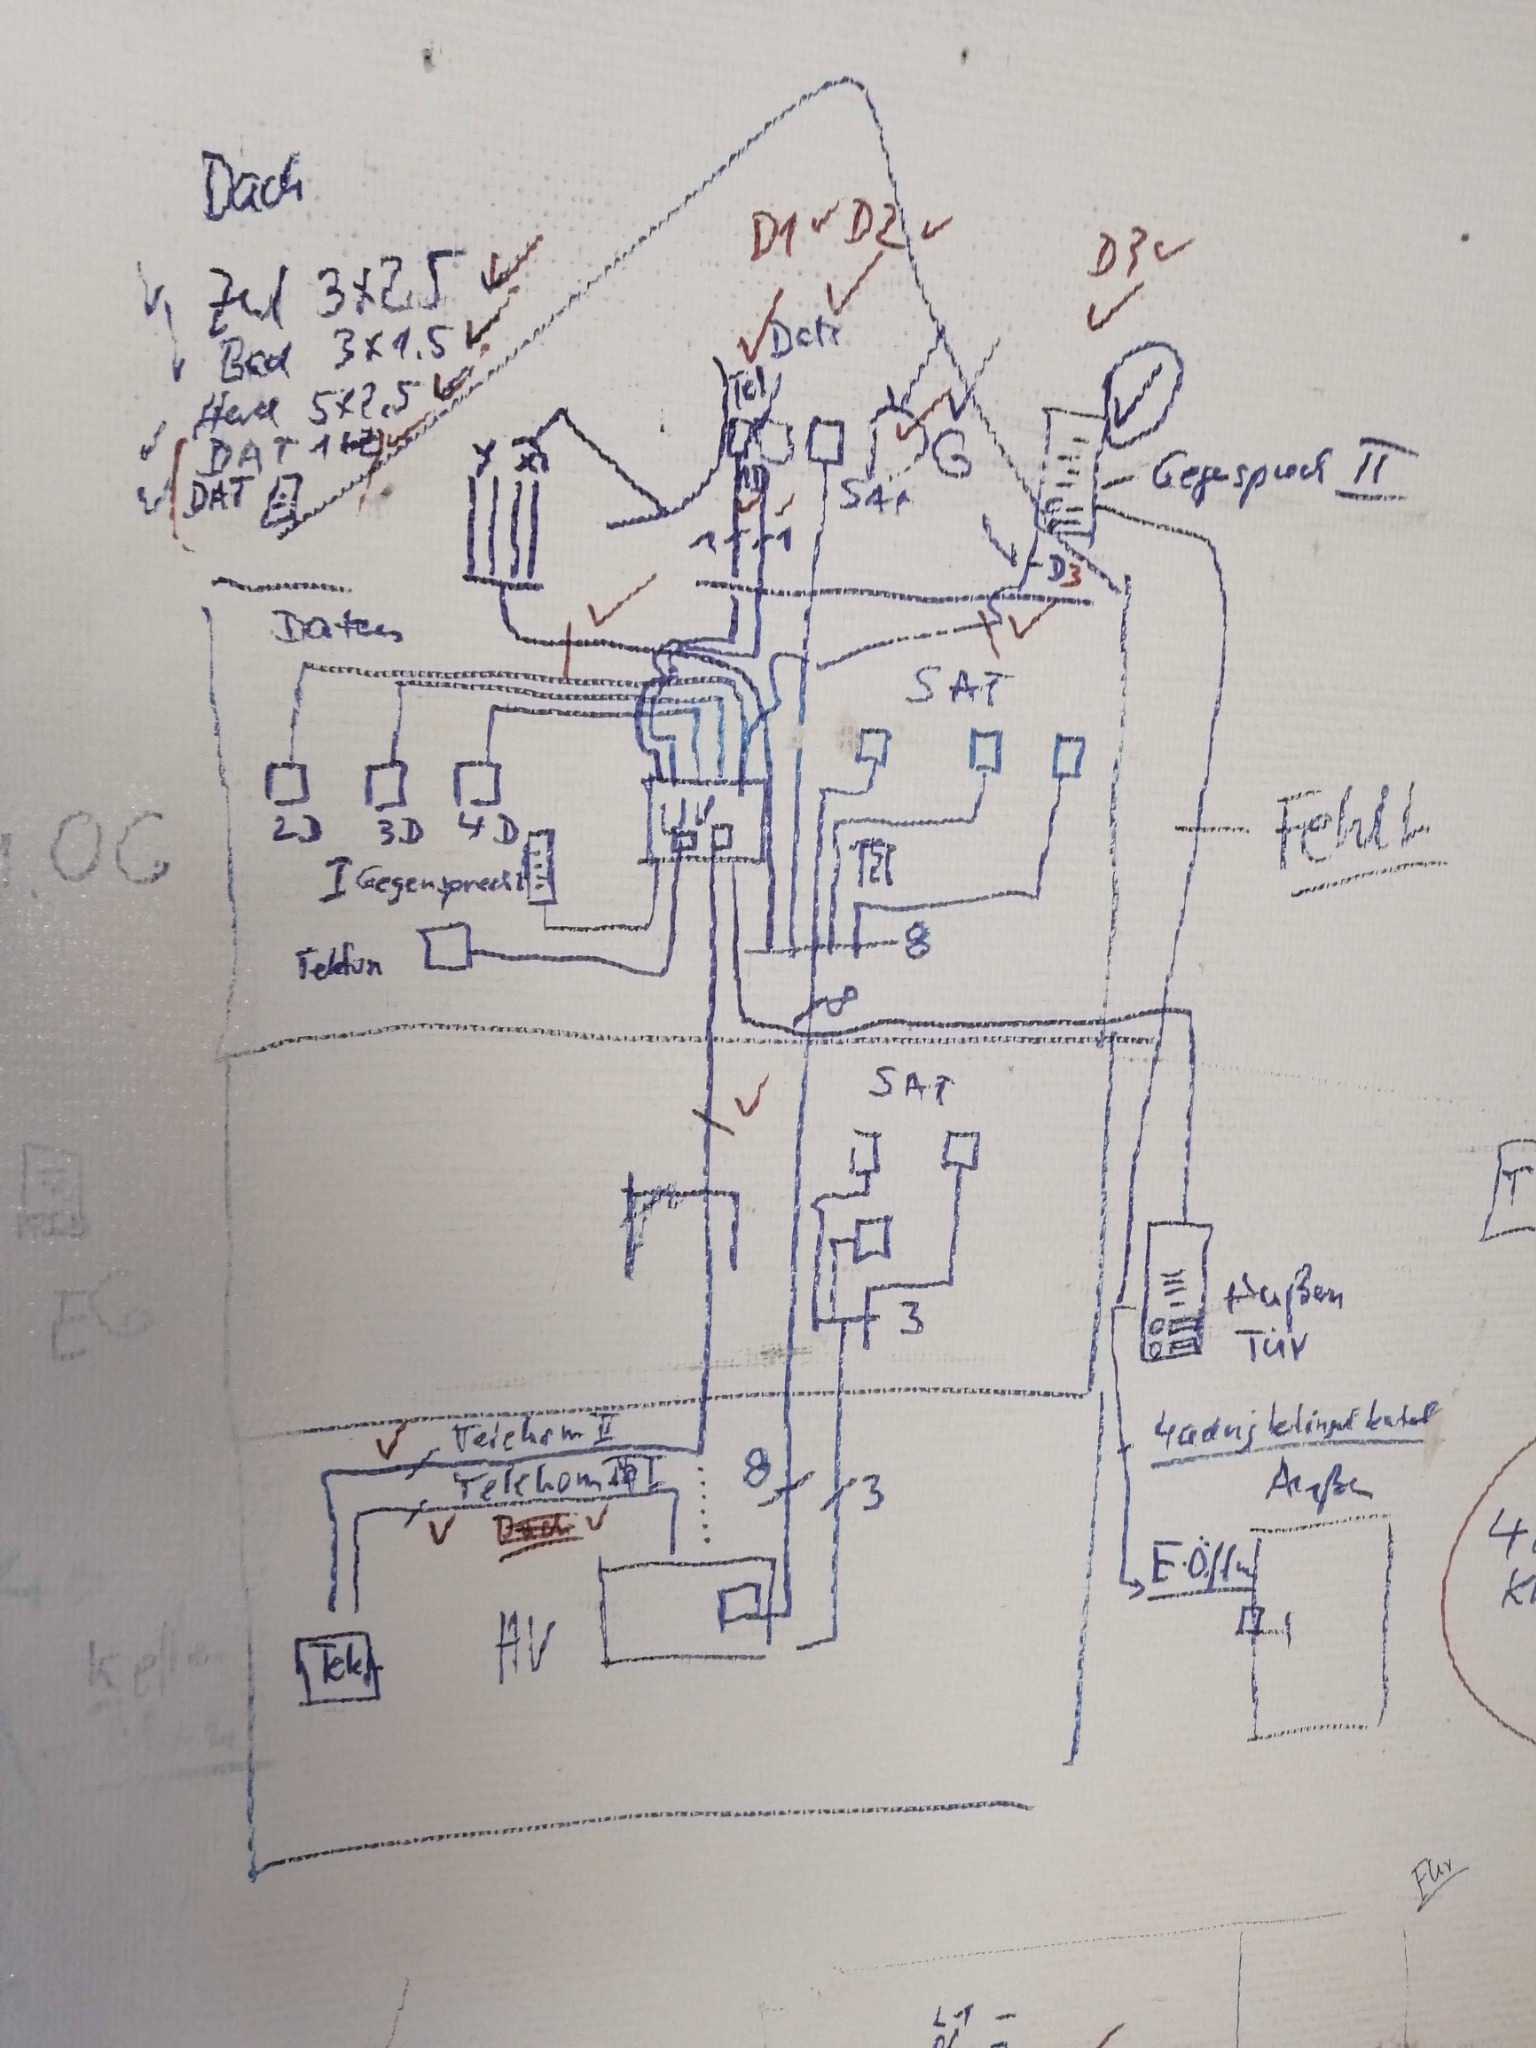 Dach
D1 D2
D3
Zul 3x2.5
Bad 3x1.5
Herd 5x2.5
DAT
DAT
Daten
Tel
SAT
G
Gegensprech II
D3
Daten
SAT
1.OG
2D 3D 4D
UV
TEL
Fehlt
I Gegensprech
Telefon
8
8
SAT
EG
3
Außen
Tür
Telekom II
Telekom I
8
3
Außen
E.Öffn
HV
Tele
Keller
Für